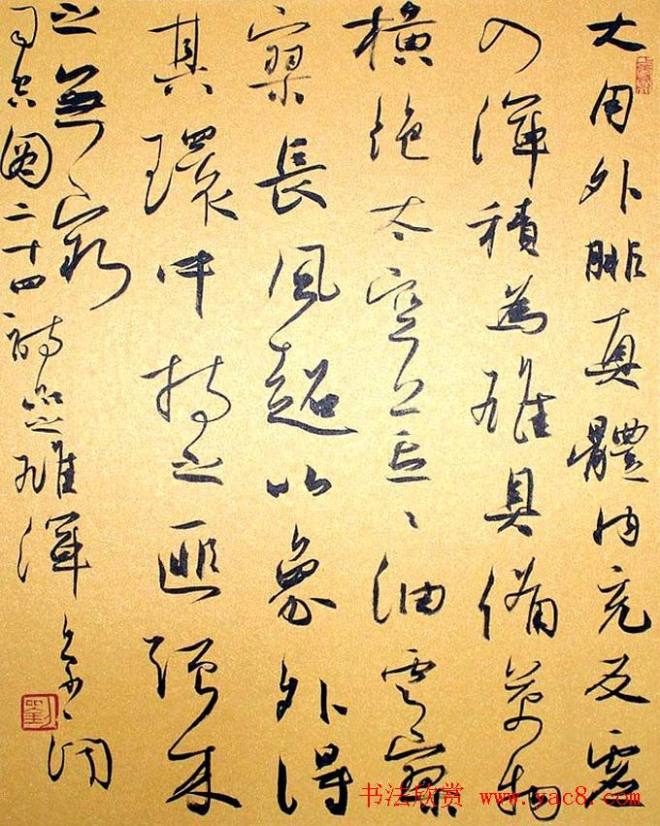 大用外腓真體内充反虛
入渾積為雄具備萬物
橫絶太空荒〻油雲寥
寥長風超以象外得
其環中持之匪强来
之無窮
司空圖二十四詩品雄渾
书法欣赏 www.yac8.com